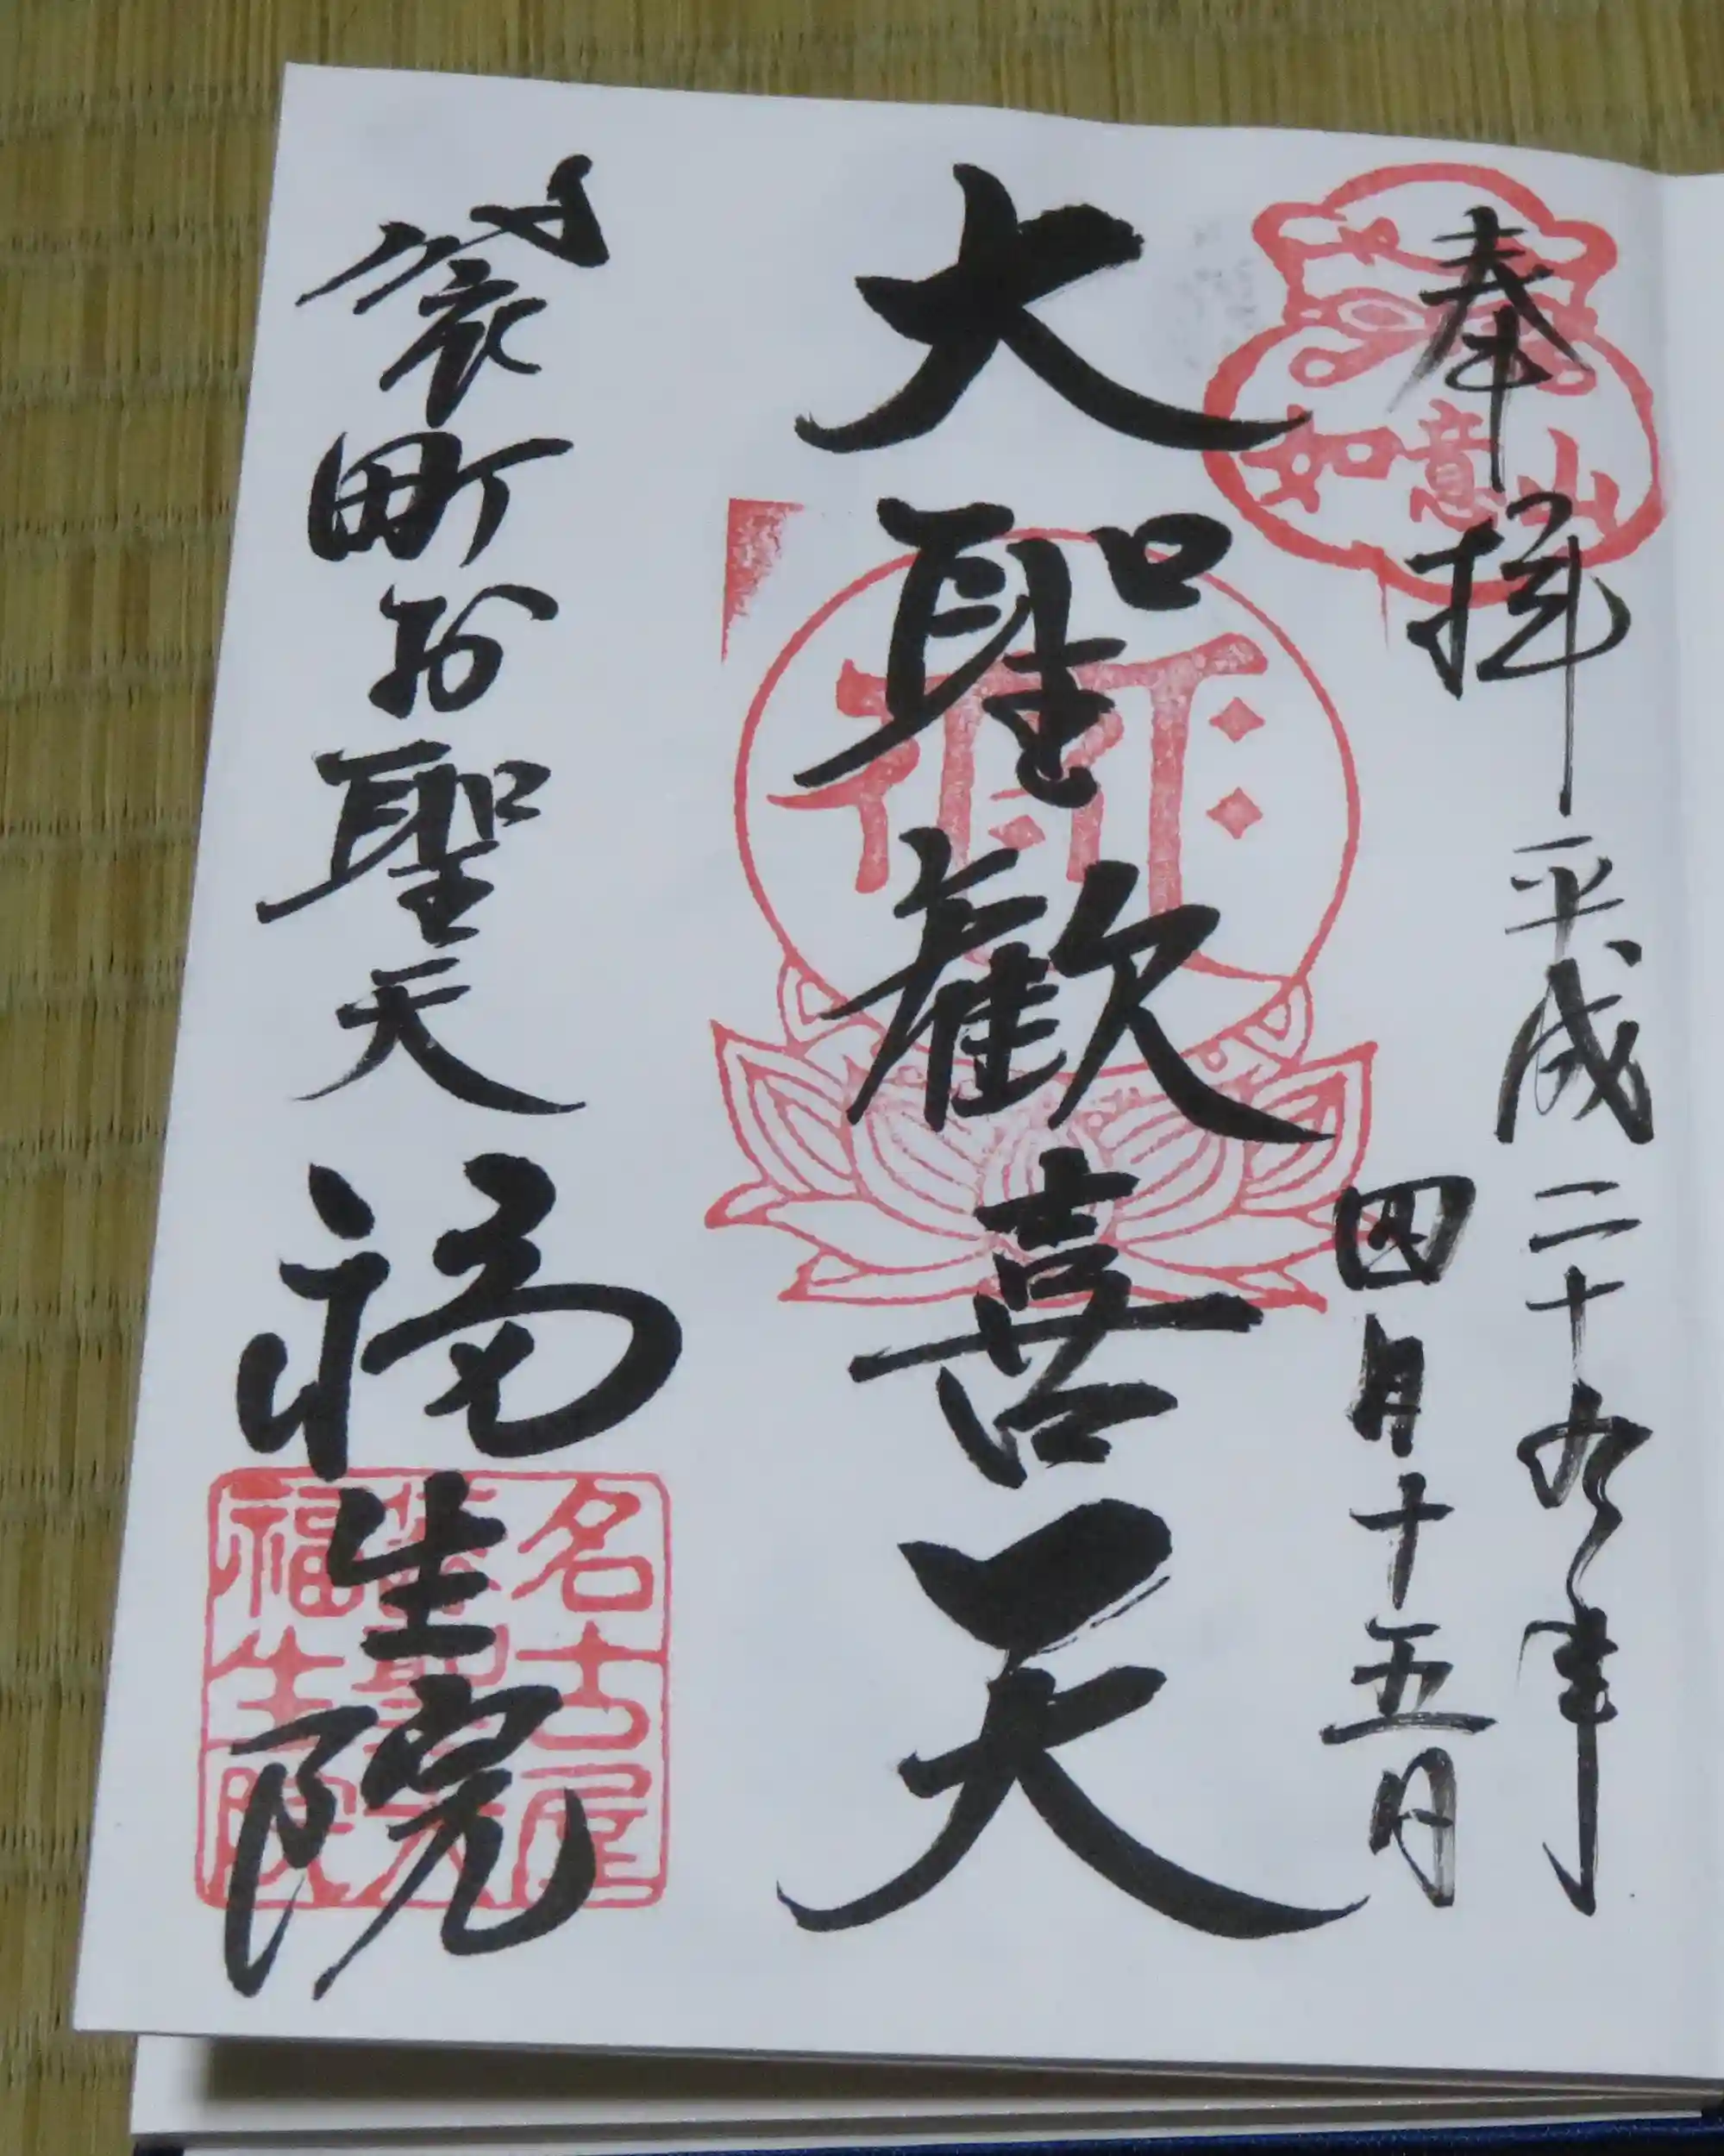 奉拝
平成二十九年
四月十五日
如意山
大聖歓喜天
袋町お聖天
福生院
名古屋
福生院